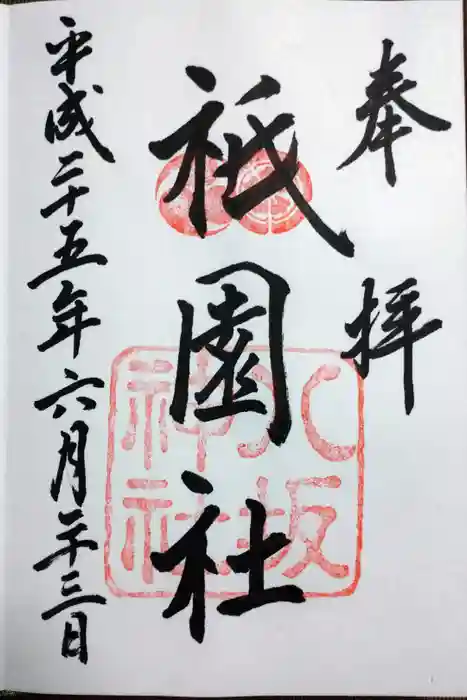 奉拝
祇園社
八坂神社
平成二十五年六月二十三日